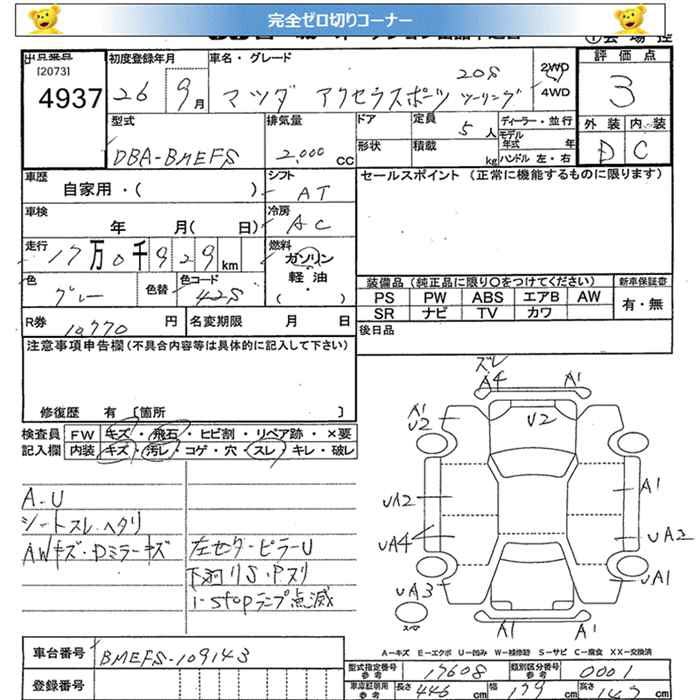 完全ゼロ切りコーナー
出品番号 初度登録年月 車名・グレード 20S 2WD 4WD 評価点
[2073] 4937 26 9月 マツダ アクセラスポーツ ツーリング 3
外装 内装
D C
型式 排気量 ドア 定員 5人 ディーラー・並行
モデル年式 年
DBA-BMEFS 2,000 CC 形状 積載 kg ハンドル 左・右
車歴 シフト セールスポイント (正常に機能するものに限ります)
自家用・( ) AT
車検 冷房
年 月( 日) AC
走行 燃料
17万0千929km ガソリン
軽油
( )
色 色替 色コード
グレー 42S
装備品 (純正品に限り〇をつけてください) 新車保証書
PS PW ABS エアB AW 有・無
SR ナビ TV カワ
R券 10770円 名変期限 月 日
後日品
注意事項申告欄(不具合内容等は具体的に記入して下さい)
修復歴 有 〔箇所 〕
検査員 FW キズ・飛石・ヒビ割・リペア跡・×要
記入欄 内装 キズ・汚レ・コゲ・穴・スレ・キレ・破レ
A-U
シートスレ・ヘタリ
AWキズ・Dミラーキズ
左センターピラーU
下廻りS・Pスリ
i-stopランプ点滅
ズレ
A4 A1
A1
U2
U2
UA2 A1
UA4 UA2
UA3 UA1
A1 A1
A-キズ E-エクボ U-凹み W-補修跡 S-サビ C-腐食 XX-交換済
車台番号 BMEFS-109143
型式指定番号 参考 17608 類別区分番号 参考 0001
登録番号
車庫証明用 参考 長さ 446cm 幅 179cm 高さ 147cm